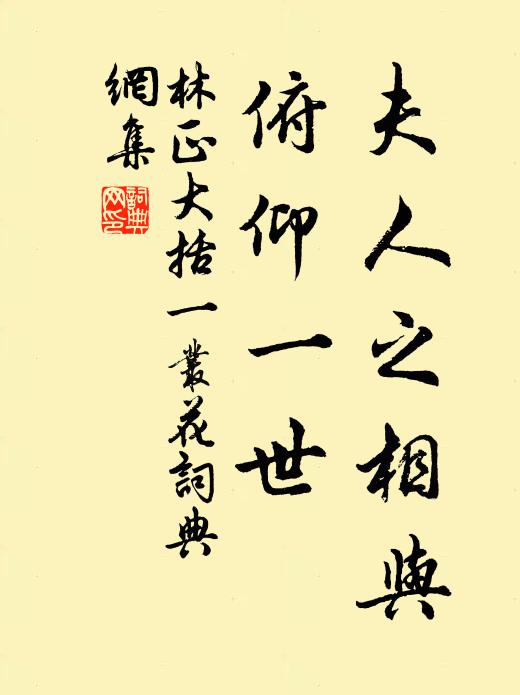 夫人之相與
俯仰一世
林正大括一叢花詞典
網集
詞典
网印